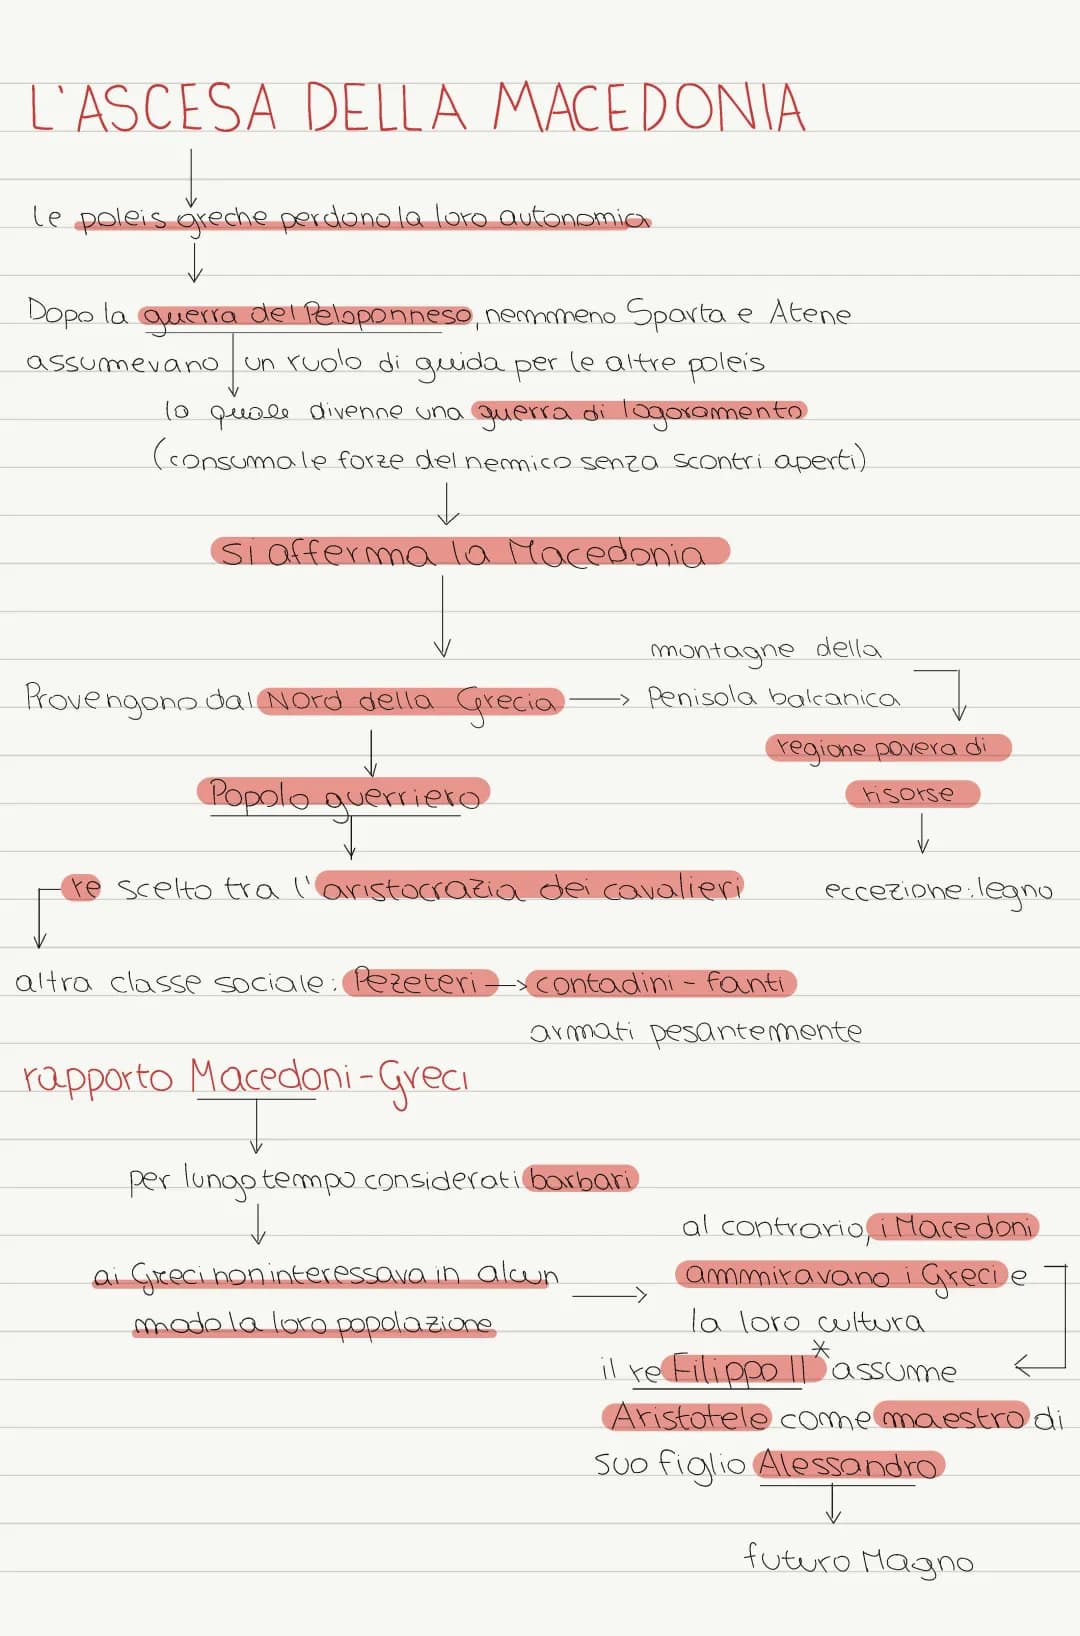 L'ASCESA DELLA MACEDONIA
le poleis greche perdono la loro autonomia
Dopo la guerra del Peloponneso, nemmeno Sparta e Atene
assumevano un ruolo di guida per le altre poleis
la quale divenne una guerra di logoramento
(consuma le forze del nemico senza scontri aperti)
si afferma la Macedonia
montagne della
Provengono dal Nord della Grecia → Penisola balcanica
regione povera di
Popolo guerriero
risorse
re scelto tra l'aristocrazia dei cavalieri
eccezione: legno
altra classe sociale: Pezeteri → contadini - fanti
armati pesantemente
rapporto Macedoni-Greci
per lungo tempo considerati barbari
al contrario, i Macedoni
ai Greci non interessava in alcun
ammiravano i Greci e
modo la loro popolazione
la loro cultura
il re Filippo II* assume
Aristotele come maestro di
suo figlio Alessandro
futuro Magno